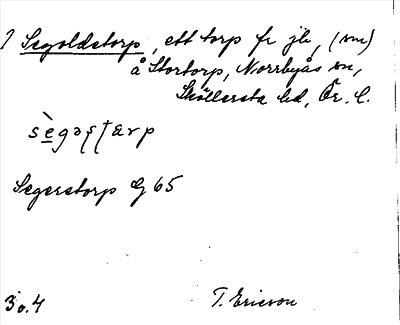 1 Segoldstorp, ett torp fr jb, (sn)
å Stortorp, Norrbyås sn,
Sköllersta hd, Ör. l.
sègəʂʈarp
Segerstorp G 65
30.4 T. Ericson